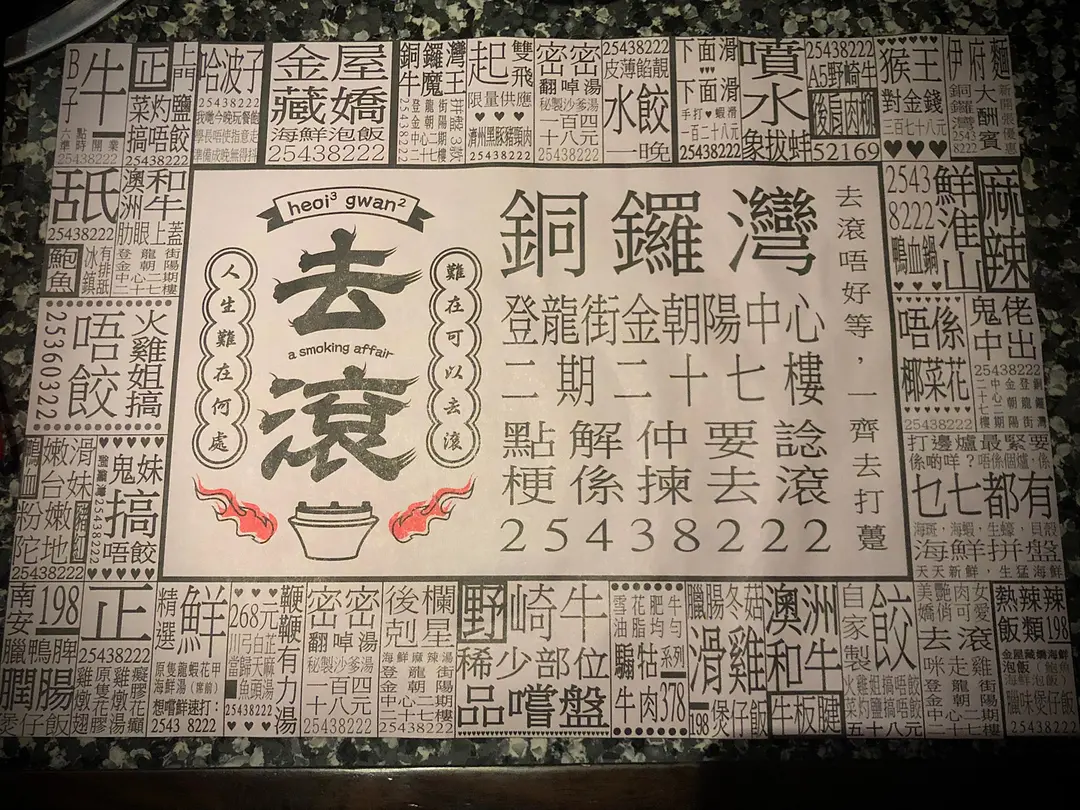 B子
牛
六點半
準時開業
25438222
正
菜灼鹽
搞唔餃
25438222
上門
哈波子
25438222
金屋
藏嬌
海鮮泡飯
25438222
銅鑼灣
牛魔王
起雙飛
限量供應
濟州黑豚豬頸肉
25438222
密密
翻啅湯
秘製沙爹湯
一百八四元
25438222
25438222
皮薄餡靚
水餃
一晚
下面滑
下面滑
手打蝦滑
一百二十八元
25438222
噴水
象拔蚌
25438222
A5野崎牛
後肩肉柳
52169
猴王
對金錢
三百七十八元
伊府麵
大酬賓
新開張優惠
舐
25438222
鮑魚
澳洲
和牛
肋眼上蓋
登龍街
金朝陽
中心二期
二十七樓
heoi³ gwan²
去
a smoking affair
滾
人生難在何處
難在可以去滾
銅鑼灣
登龍街金朝陽中心
二期二十七樓
點解仲要諗
梗係揀去滾
25438222
去滾唔好等，一齊去打躉
2543
8222
鴨血鍋
鮮淮山
麻辣
25360322
唔餃
火雞姐搞
唔係
椰菜花
25438222
鬼佬
中出
25438222
鴨血粉
嫩滑
台妹
嫩豬紅
陀地
25438222
鬼妹
搞
唔餃
銅鑼灣25438222
打邊爐最緊要
係啲咩？唔係個爐，係
乜七都有
海斑，海蝦，生蠔，貝殼
海鮮拼盤
天天新鮮，生猛海鮮
南安
198
臘鴨脾
膶腸
煲仔飯
正
25438222
精選
鮮
想嚐鮮速打：
2543 8222
268元
25438222
鞭鞭有力湯
密密
翻啅湯
秘製沙爹湯
一百八四元
25438222
後欄
剋星
海鮮麻辣湯
登龍街
金朝陽
中心二期
二十七樓
25438222
野崎牛
稀少部位
品嚐盤
雪花肥牛
油脂均勻
騸牯系列
牛肉378
臘腸冬菇
滑雞
198煲仔飯
澳洲
和牛
牛板腱
自家製
餃
火雞姐搞唔餃
菜灼鹽搞唔餃
25438222
美艷肉女
嬌俏可愛
去滾
咪走雞
登龍街
金朝陽
中心二期
二十七樓
熱辣辣
飯類198
金屋藏嬌海鮮
泡飯
臘味煲仔飯
25438222